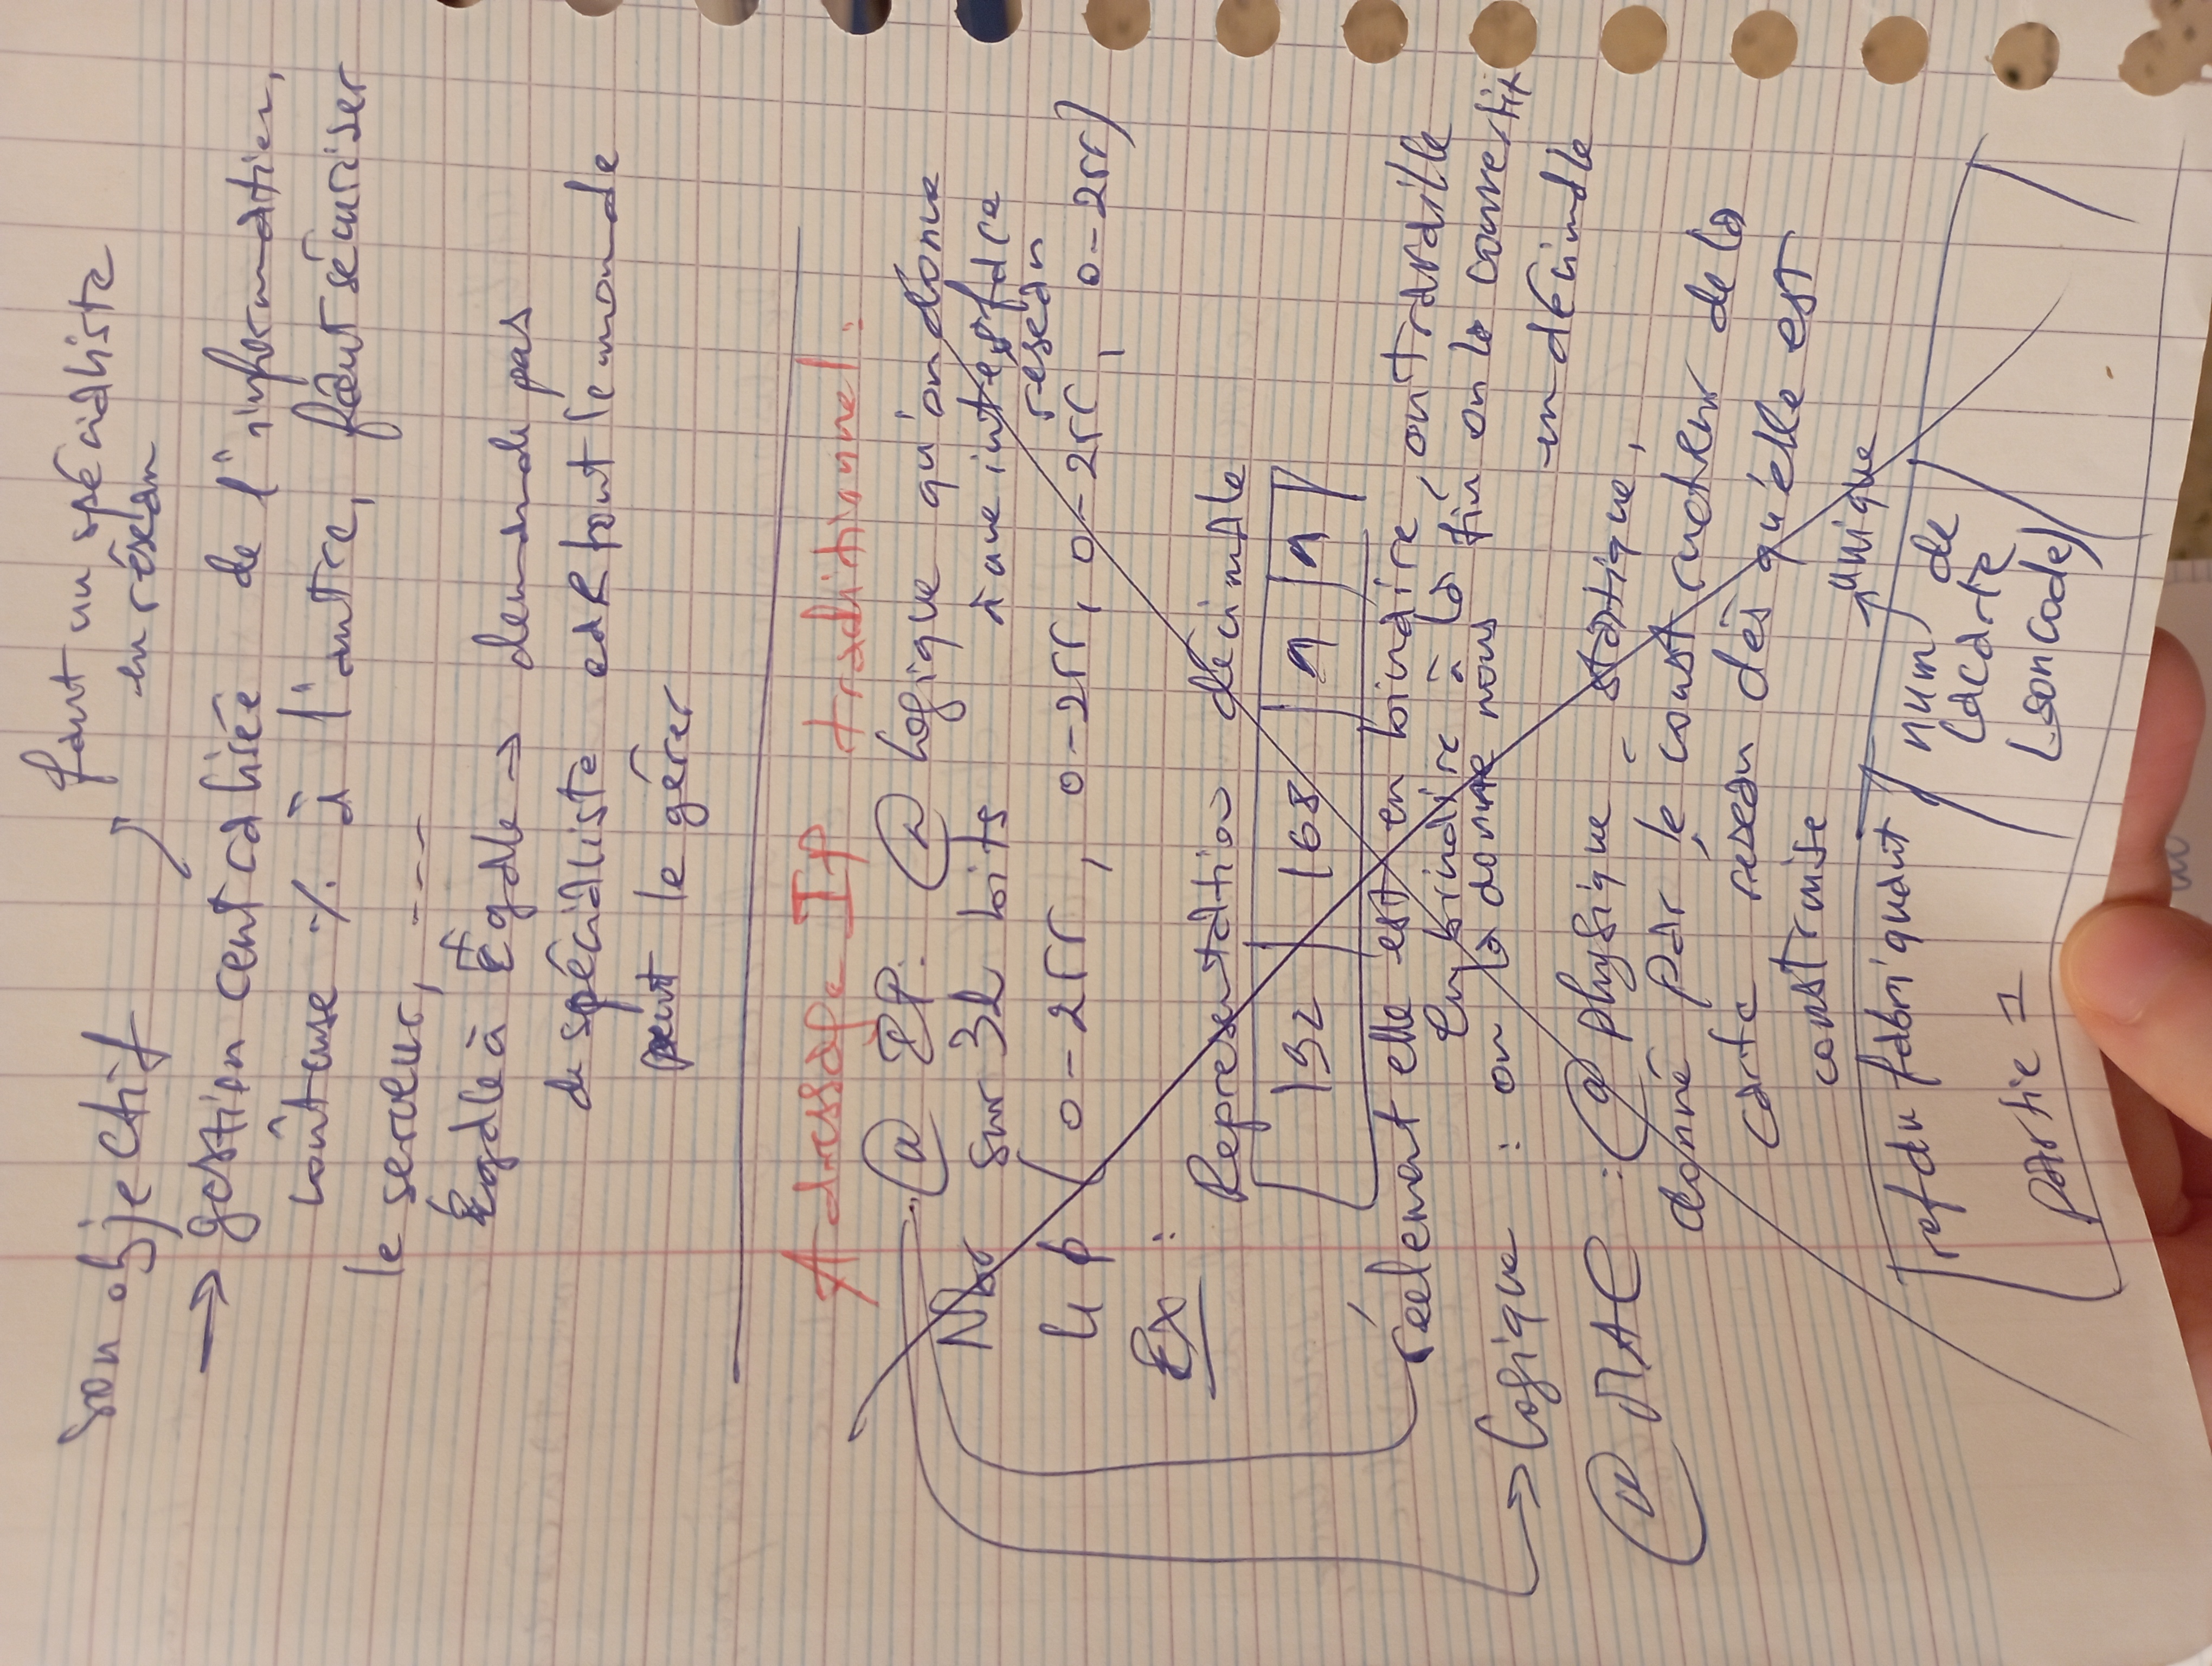 son objectif
faut un spécialiste
en réseau
→ gestion centralisée de l'information,
coûteuse % à l'autre, faut sécuriser
le serveur, ----
Égale à Égale → demande pas
de spécialiste càd tout le monde
peut le gérer
Adressage IP traditionnel :
@ IP: @ logique qu'on donne
à une interface
réseau
Nbr sur 32 bits
4 (0-255, 0-255, 0-255, 0-255)
Ex :
Representation décimale
192 168 1 1
réelement elle est en binaire, on travaille
en binaire à la fin on la convertit
en décimale
→ logique : on la donne nous
@ MAC : @ physique statique,
donné par le constructeur de la
carte réseau dès qu'elle est
construite
unique
ref du fabriquant
partie 1
num de
la carte
(son code)